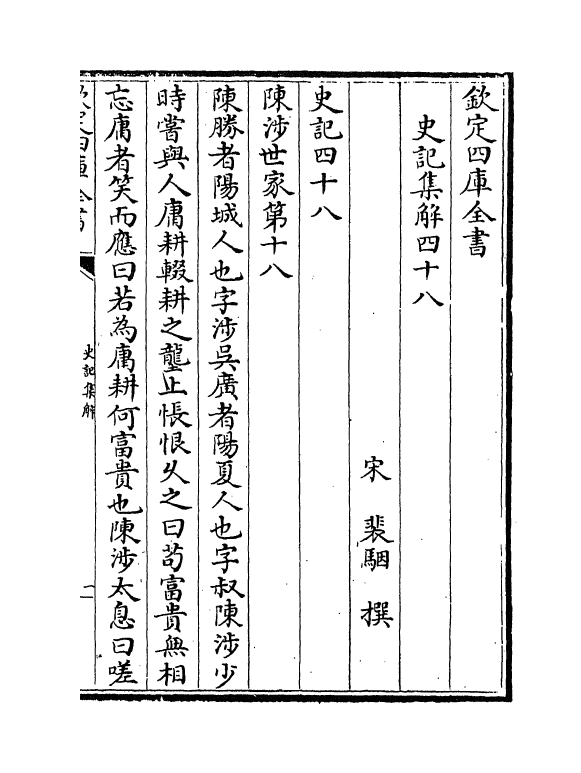 欽定四庫全書
史記集解四十八
宋 裴駰 撰
史記四十八
陳涉世家第十八
陳勝者陽城人也字涉吳廣者陽夏人也字叔陳涉少
時嘗與人庸耕輟耕之壟上悵恨久之曰茍富貴無相
忘庸者笑而應曰若為庸耕何富貴也陳涉太息曰嗟
欽定四庫全書
史記集解
一